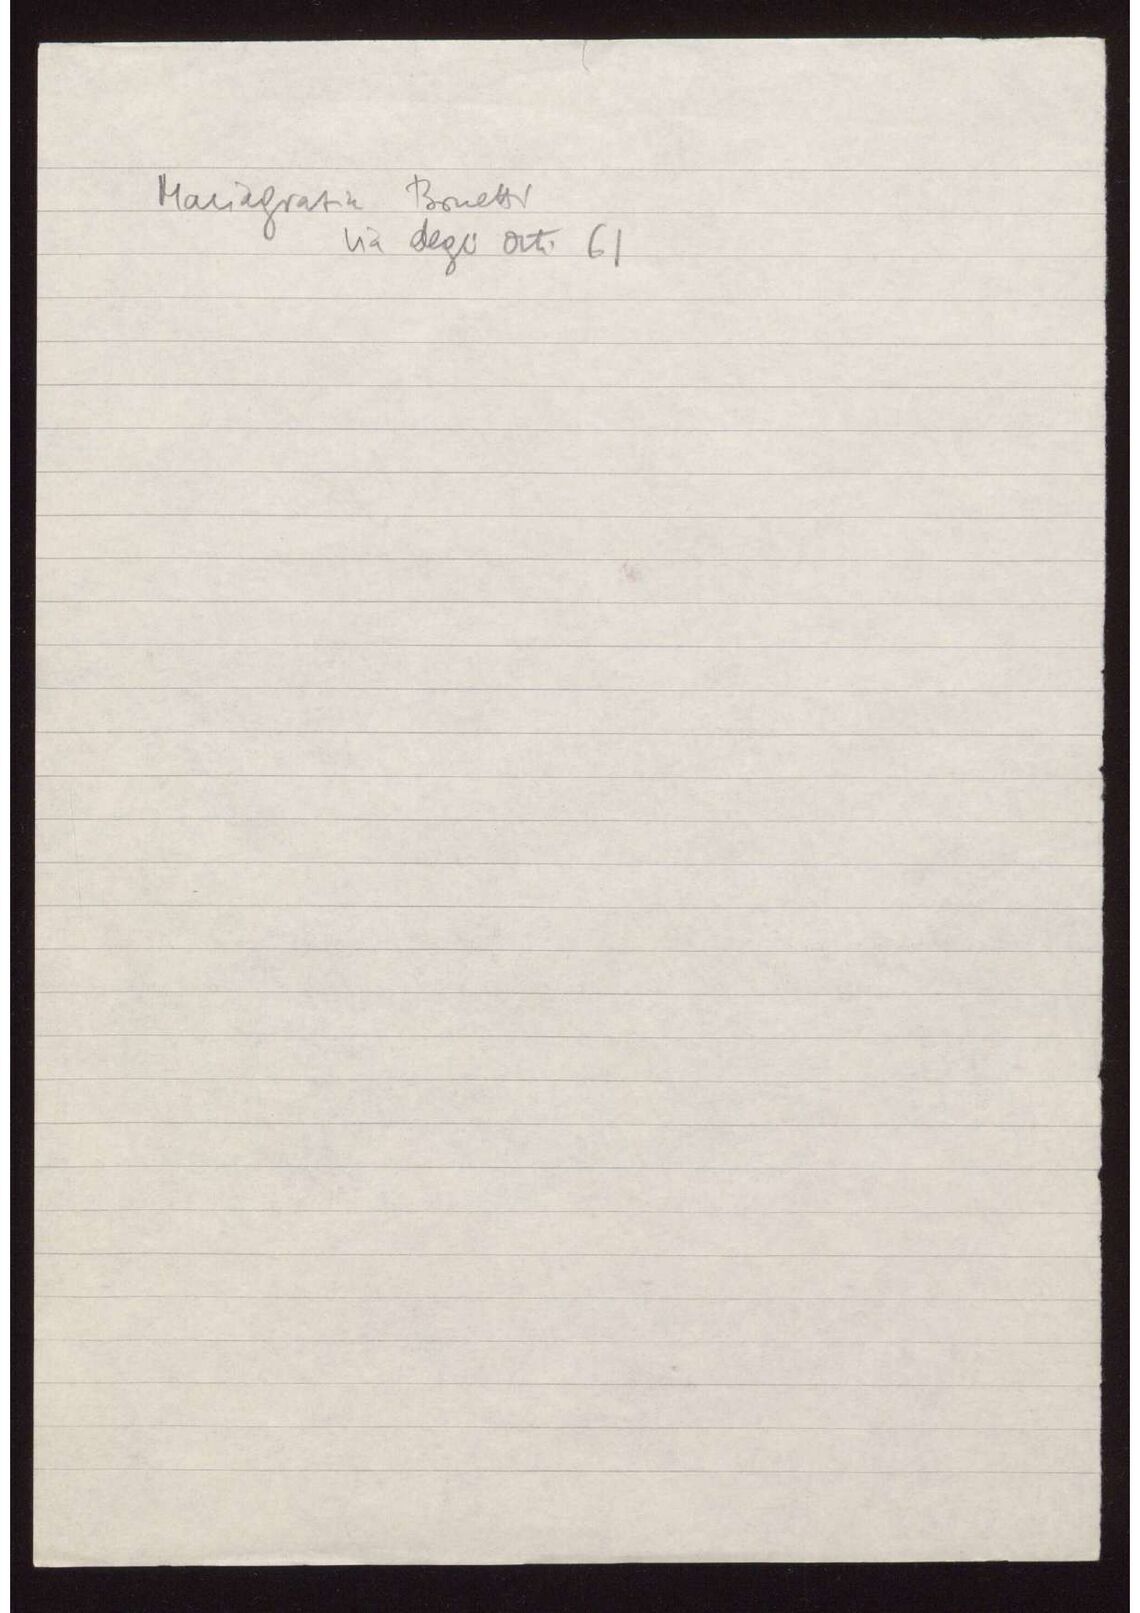 Mariagrazia Bonetti
via degli Orti 61